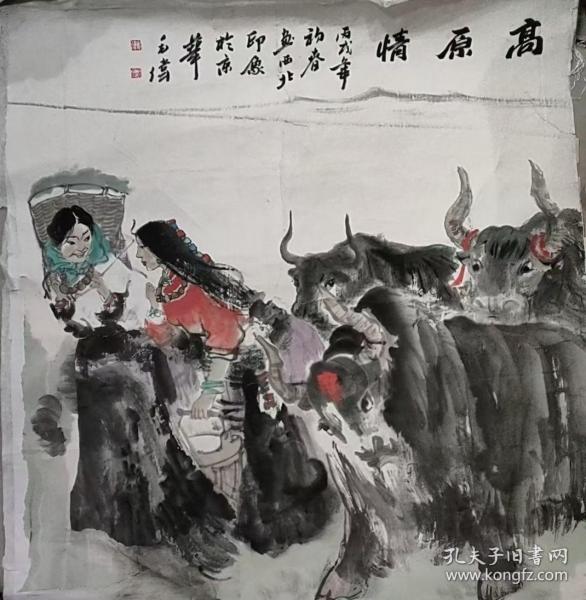 高原情
丙戌年
初春
画西北
印象
於京
華
孔夫子旧书网
www.kongfz.com